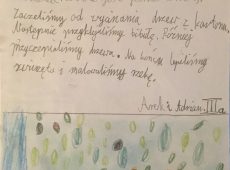 Zaczęliśmy od wycinania drzew z kartonu.
Następnie przykleiliśmy bibułę. Później
przyczepiliśmy drzewa. Na koniec lepiliśmy
zwierzęta i malowaliśmy rzekę.
Arek i Adrian. III a